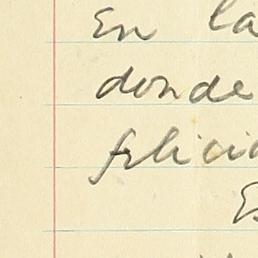 En la
donde
felici
Es